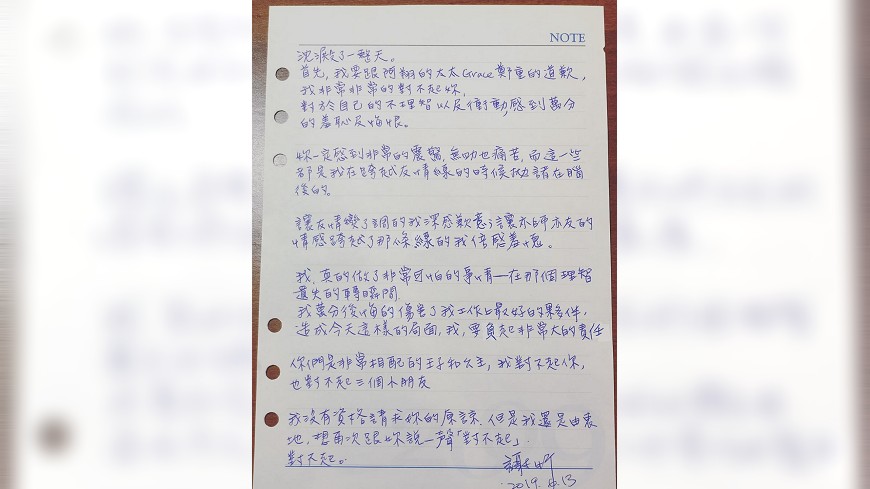 NOTE
沈澱了一整天。
首先,我要跟阿翔的太太Grace鄭重的道歉,
我非常非常的對不起妳,
對於自己的不理智以及衝動,感到萬分
的羞恥及悔恨。
妳一定感到非常的震驚,無助也痛苦,而這一些
都是我在跨越友情線的時候拋諸在腦
後的。
讓友情變了調的我深感歉意;讓亦師亦友的
情感跨越了那條線的我倍感羞愧。
我,真的做了非常可怕的事情—在那個理智
遺失的轉瞬間.
我萬分後悔的傷害了我工作上最好的夥伴,
造成今天這樣的局面,我,要負起非常大的責任
你們是非常相配的王子和公主,我對不起你,
也對不起三個小朋友
我沒有資格請求妳的原諒.但是我還是由衷
地,想再次跟妳說一聲「對不起」.
對不起。
謝忻
2019.4.13